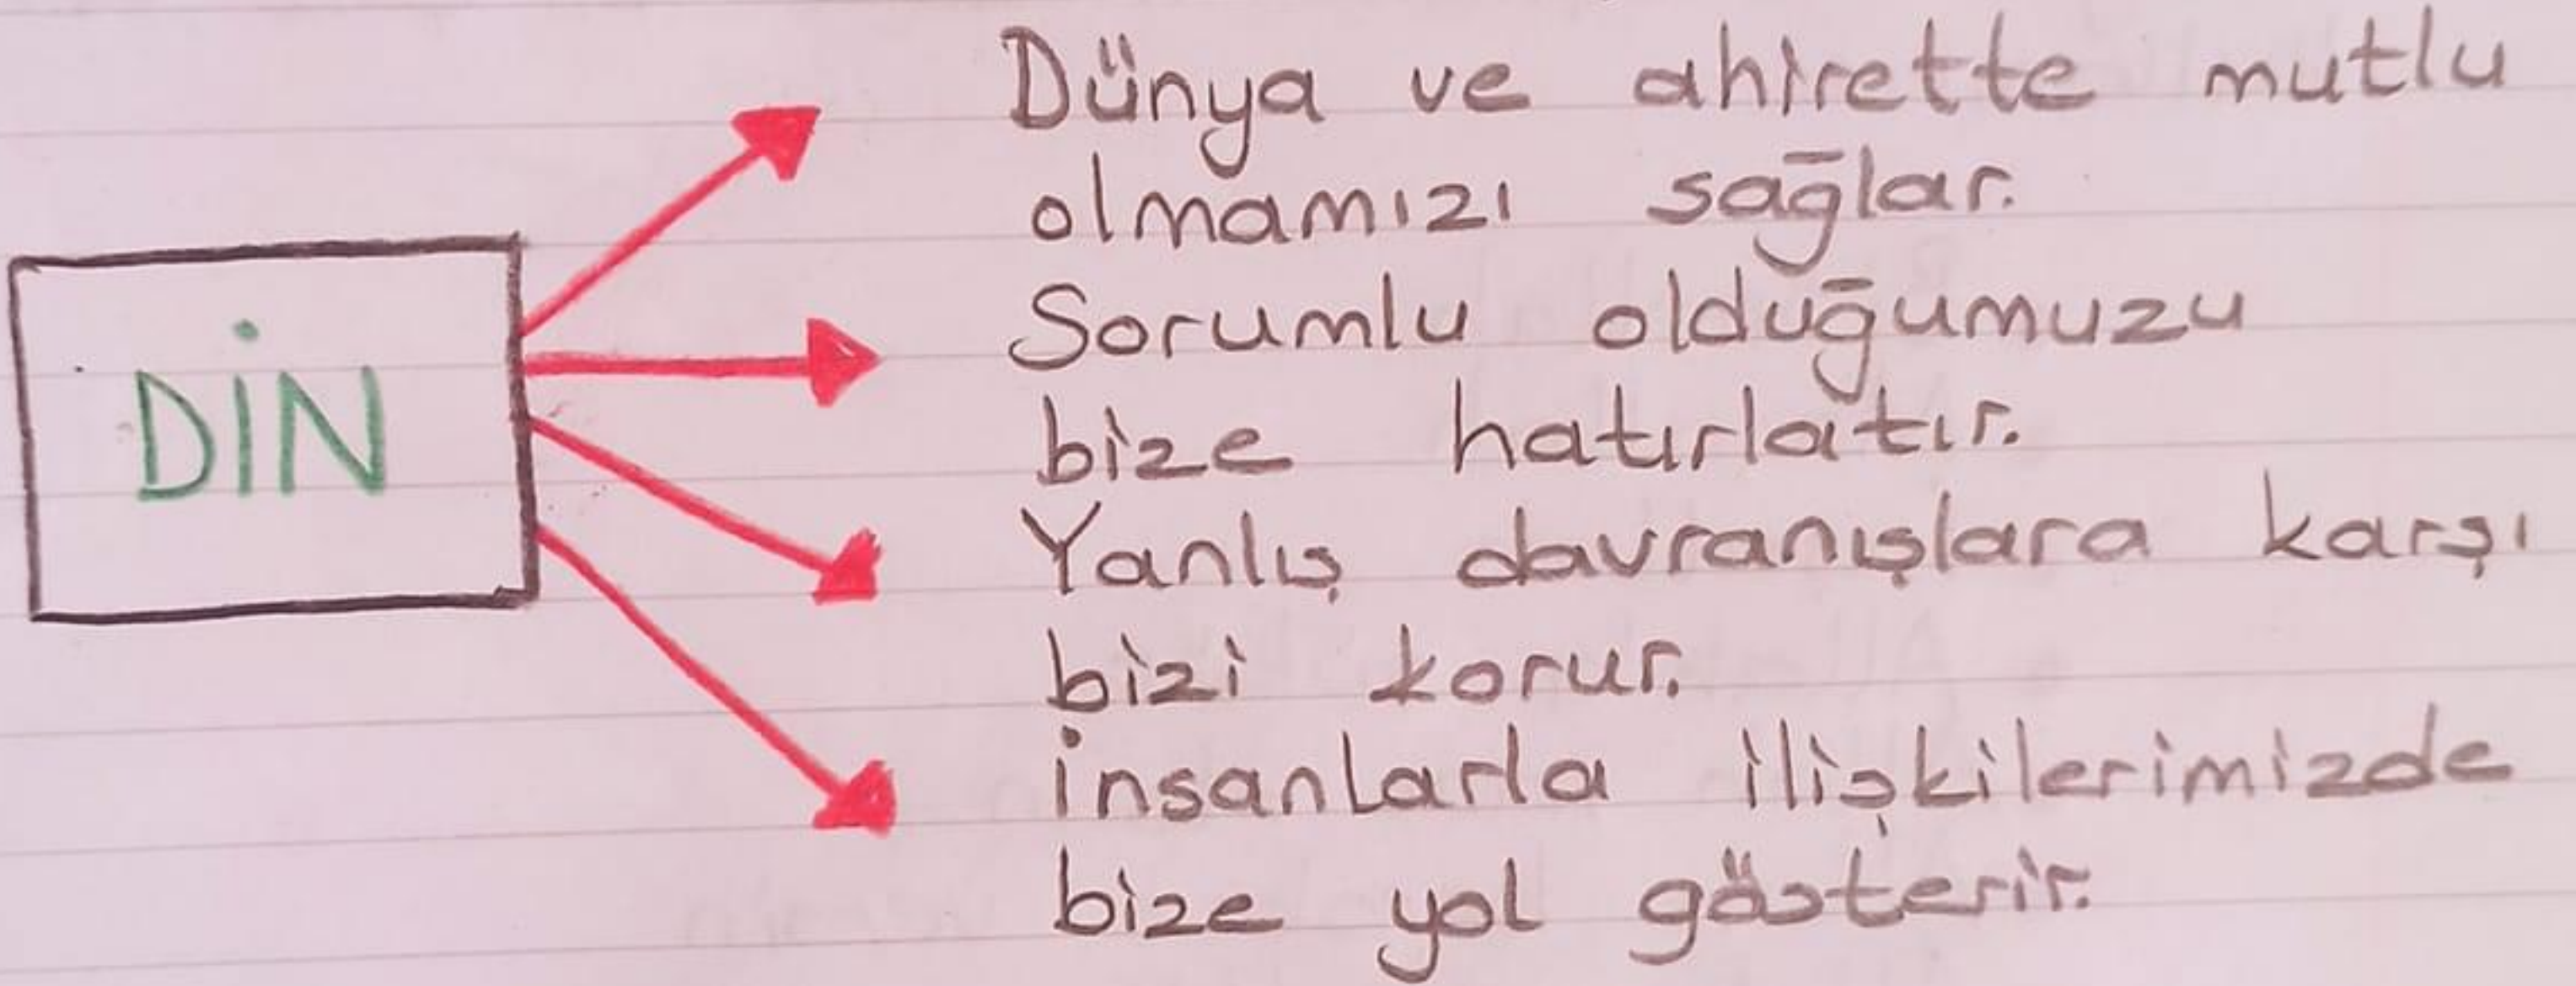 Dünya ve ahirette mutlu
olmamızı sağlar.
DİN
Sorumlu olduğumuzu
bize hatırlatır.
Yanlış davranışlara karşı
bizi korur.
İnsanlarla ilişkilerimizde
bize yol gösterir.